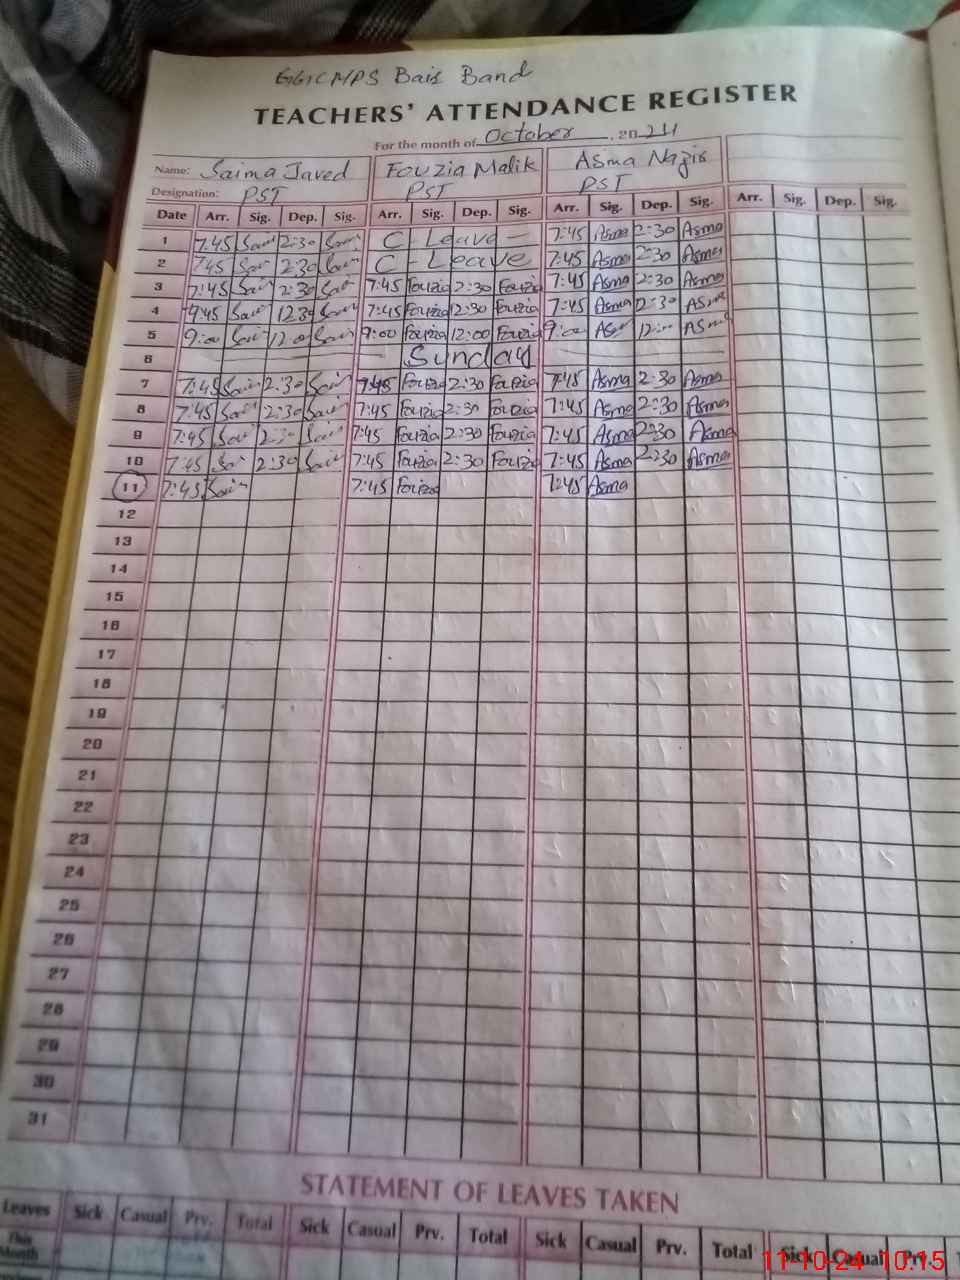 GGCMPS Bais Band
TEACHERS' ATTENDANCE REGISTER
For the month of October, 2024
Name: Saima Javed Fouzia Malik Asma Nazir
Designation: PST PST PST
Date Arr. Sig. Dep. Sig. Arr. Sig. Dep. Sig. Arr. Sig. Dep. Sig. Arr. Sig. Dep. Sig.
1 7:45 Sai 2:30 Sai C - Leave - 7:45 Asma 2:30 Asma
2 7:45 Sai 2:30 Sai C - Leave 7:45 Asma 2:30 Asma
3 7:45 Sai 2:30 Sai 7:45 Fouzia 2:30 Fouzia 7:45 Asma 2:30 Asma
4 Sai 12:30 Sai 7:45 Fouzia 12:30 Fouzia 7:45 Asma 12:30 Asma
5 9:00 Sai 12:00 Sai 9:00 Fouzia 12:00 Fouzia 9:00 Asm 12:00 Asma
6 Sunday
7 7:45 Sai 2:30 Sai 7:45 Fouzia 2:30 Fouzia 7:45 Asma 2:30 Asma
8 7:45 Sai 2:30 Sai 7:45 Fouzia 2:30 Fouzia 7:45 Asma 2:30 Asma
9 7:45 Sai 2:30 Sai 7:45 Fouzia 2:30 Fouzia 7:45 Asma 2:30 Asma
10 7:45 Sai 2:30 Sai 7:45 Fouzia 2:30 Fouzia 7:45 Asma 2:30 Asma
11 7:45 Sai 7:45 Fouzia 7:45 Asma
12
13
14
15
16
17
18
19
20
21
22
23
24
25
26
27
28
29
30
31
STATEMENT OF LEAVES TAKEN
Leaves Sick Casual Prv. Total Sick Casual Prv. Total Sick Casual Prv. Total Sick Casual Prv.
This
Month
11-10-24 10:15